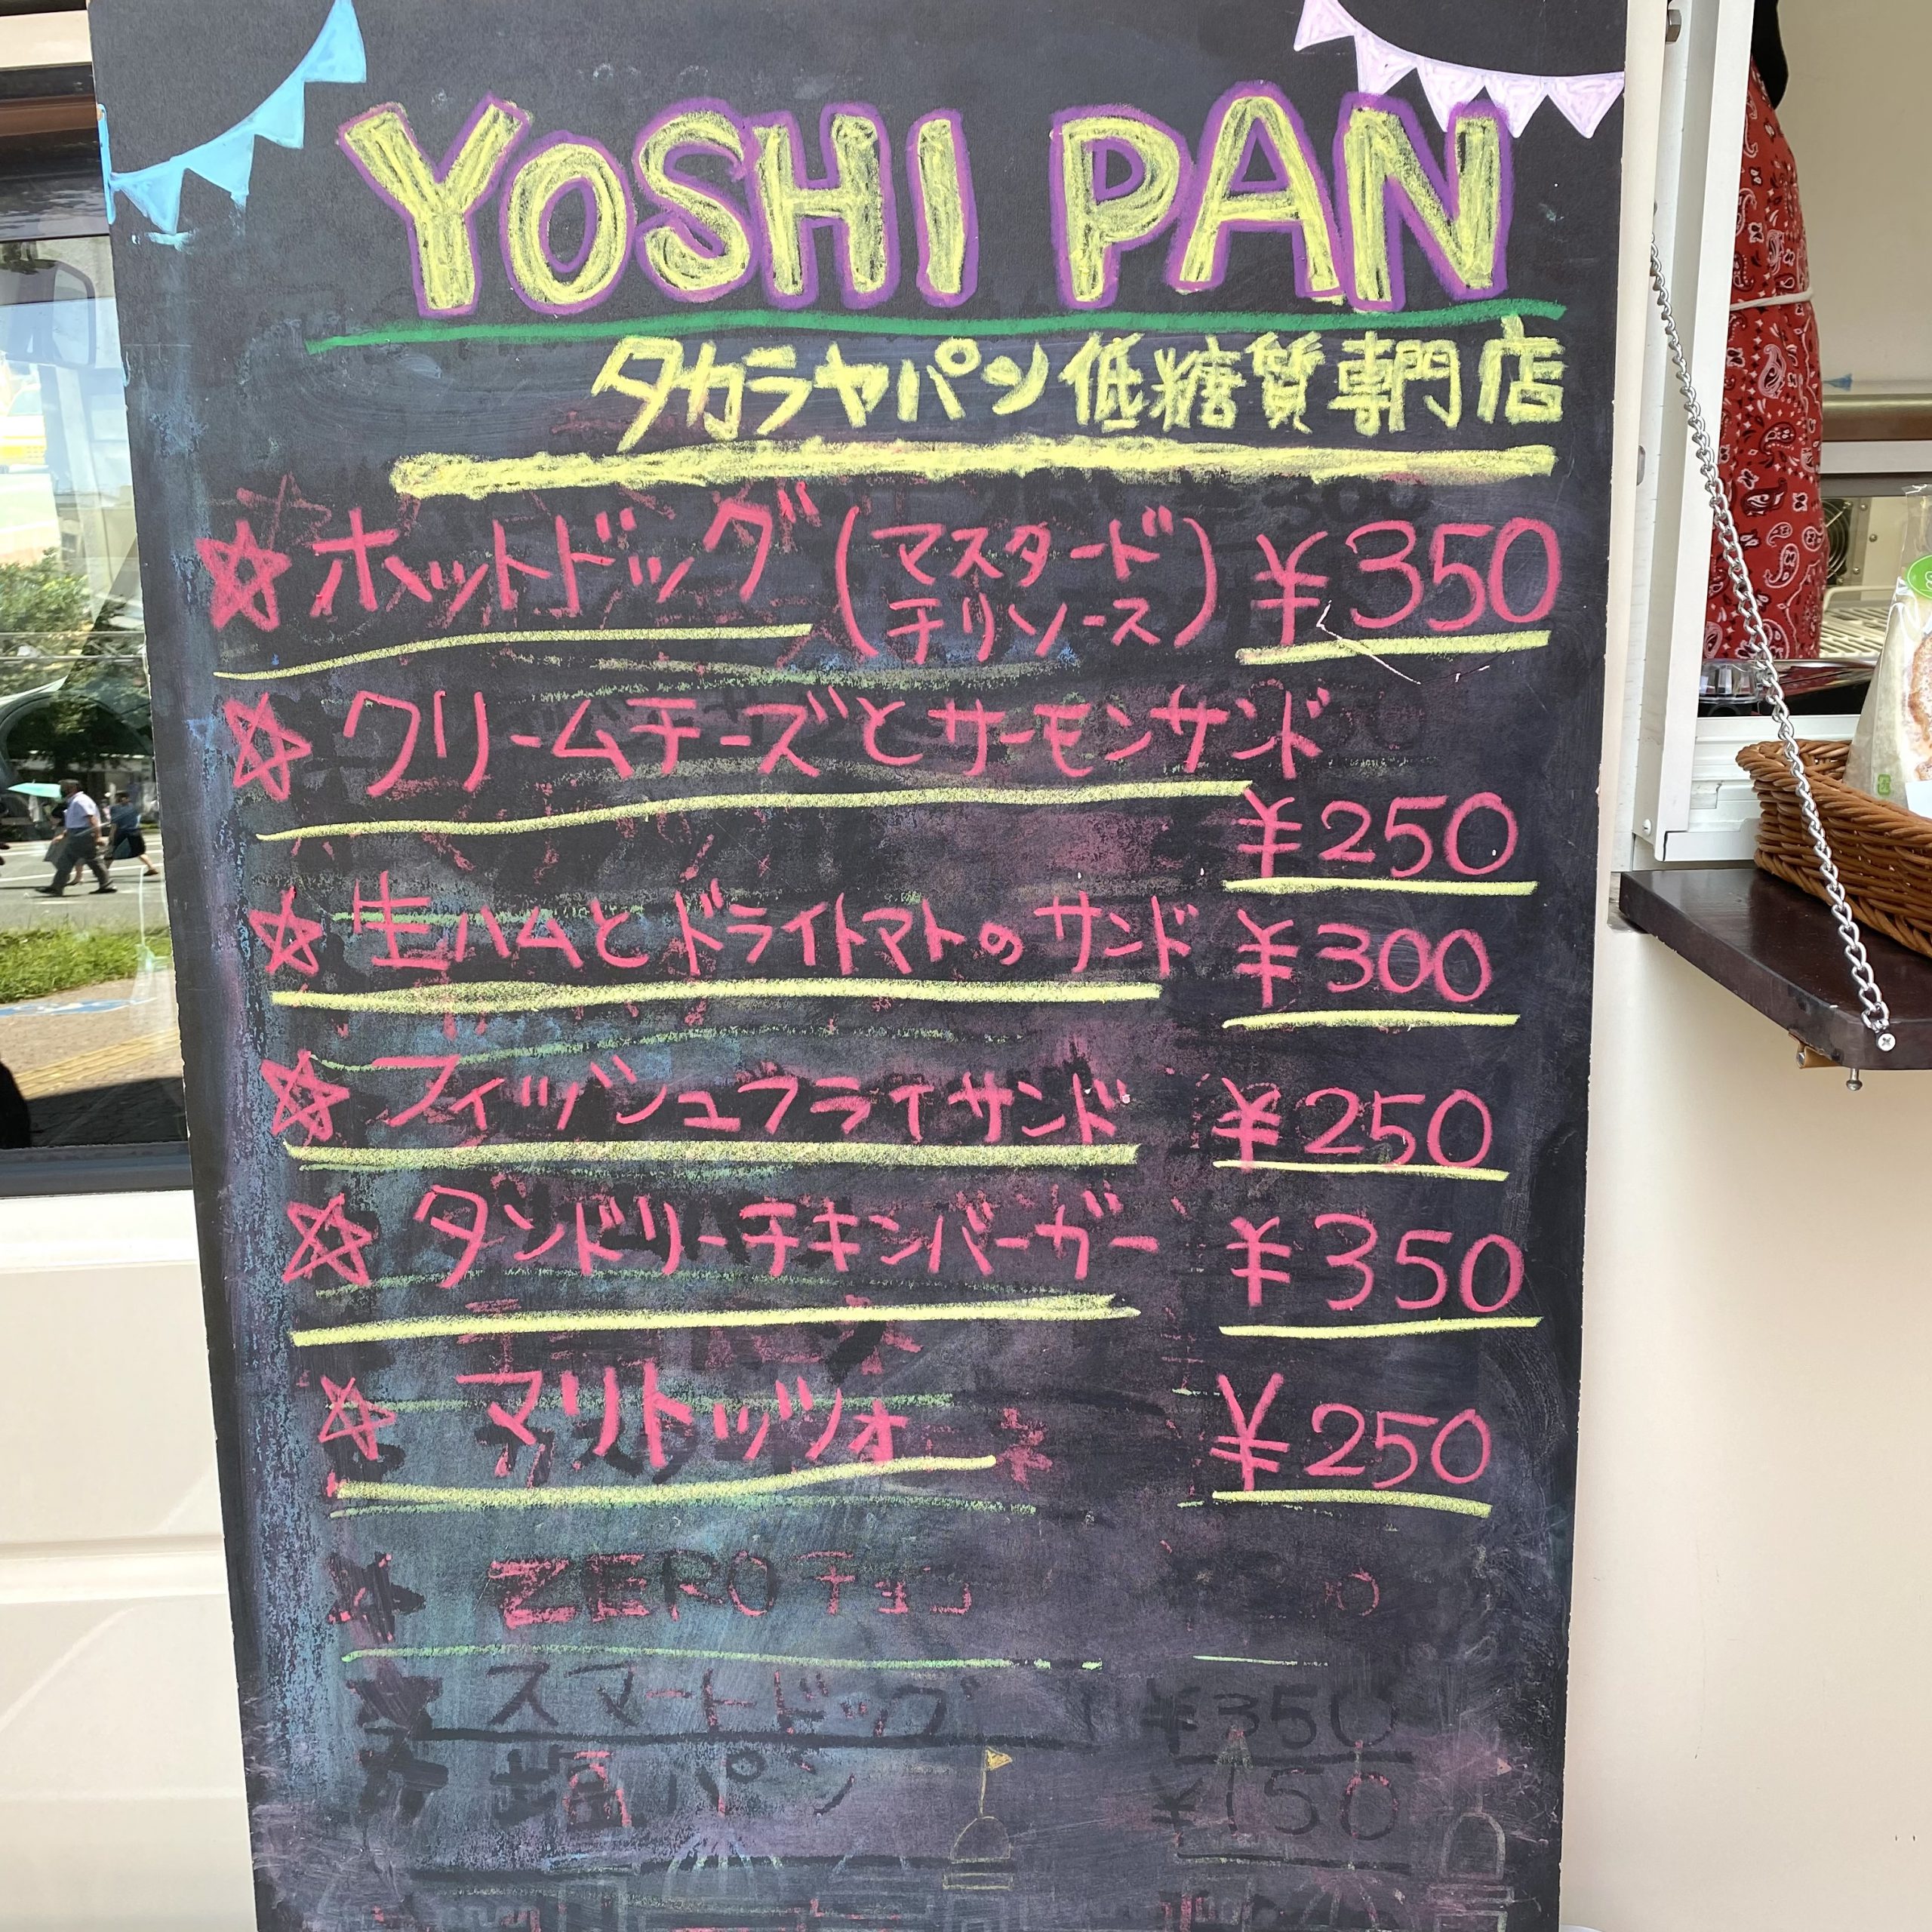 YOSHI PAN
タカラヤパン低糖質専門店
☆ ホットドッグ (マスタード チリソース) ¥350
☆ クリームチーズとサーモンサンド
¥250
☆ 生ハムとドライトマトのサンド ¥300
☆ フィッシュフライサンド ¥250
☆ タンドリーチキンバーガー ¥350
☆ マリトッツォ ¥250
ZEROチョコ
スマートドッグ ¥350
塩パン ¥150